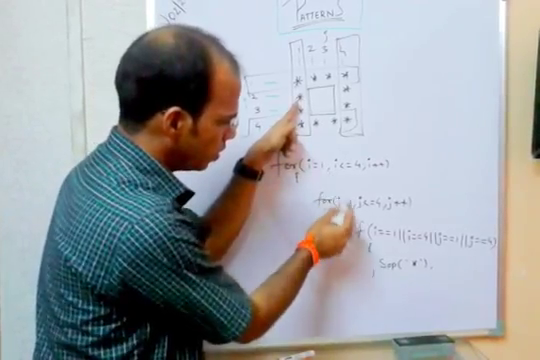 PATTERNS
j
1 2 3 4
* * * *
2 * *
3 * *
4 * * * *
for(i=1,i<=4,i++)
{
for(j=1,j<=4,j++)
if(i==1||i==4||j==1||j==4)
{
Sop("*"),